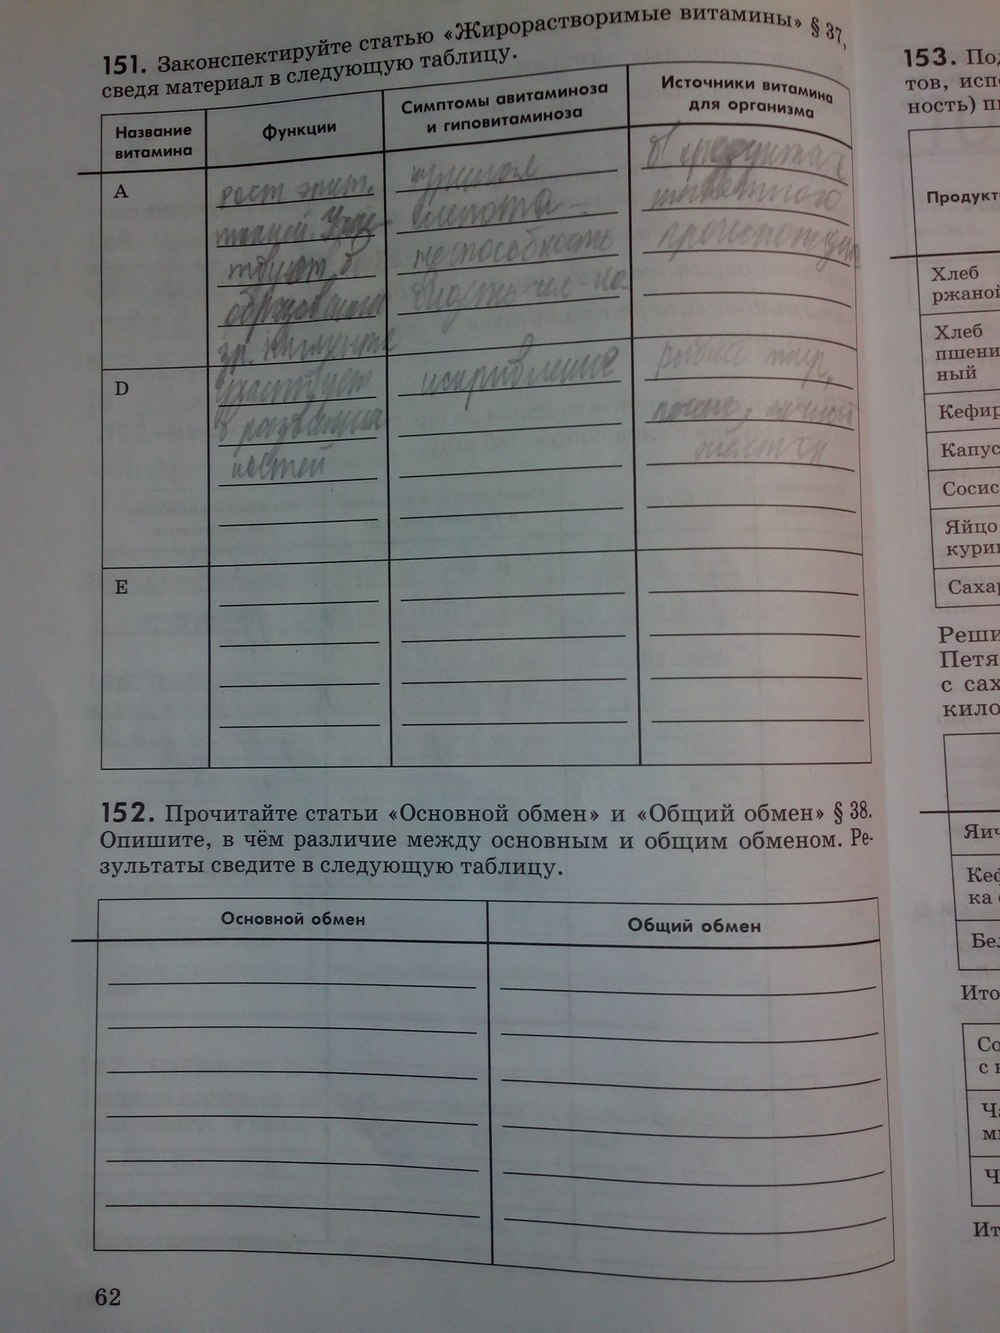 151. Законспектируйте статью «Жирорастворимые витамины» § 37,
сведя материал в следующую таблицу.
Название
витамина
Функции
Симптомы авитаминоза
и гиповитаминоза
Источники витамина
для организма
А
рост эпит.
тканей. Учас-
твует в
образовании
зр. пигмента
куриная
слепота -
неспособность
в продуктах
животного
D
участвует
в развитии
костей
искривление
рыбий жир,
печень, яичный
желток
Е
152. Прочитайте статьи «Основной обмен» и «Общий обмен» § 38.
Опишите, в чём различие между основным и общим обменом. Ре-
зультаты сведите в следующую таблицу.
Основной обмен
Общий обмен
62
153. Под
тов, исп
ность) п
Продукт
Хлеб
ржаной
Хлеб
пшени
ный
Кефир
Капус
Сосис
Яйцо
кури
Сахар
Реши
Петя
с сах
кило
Яич
Кеф
ка
Бел
Ито
Со
с
Ча
м
Ч
Ит